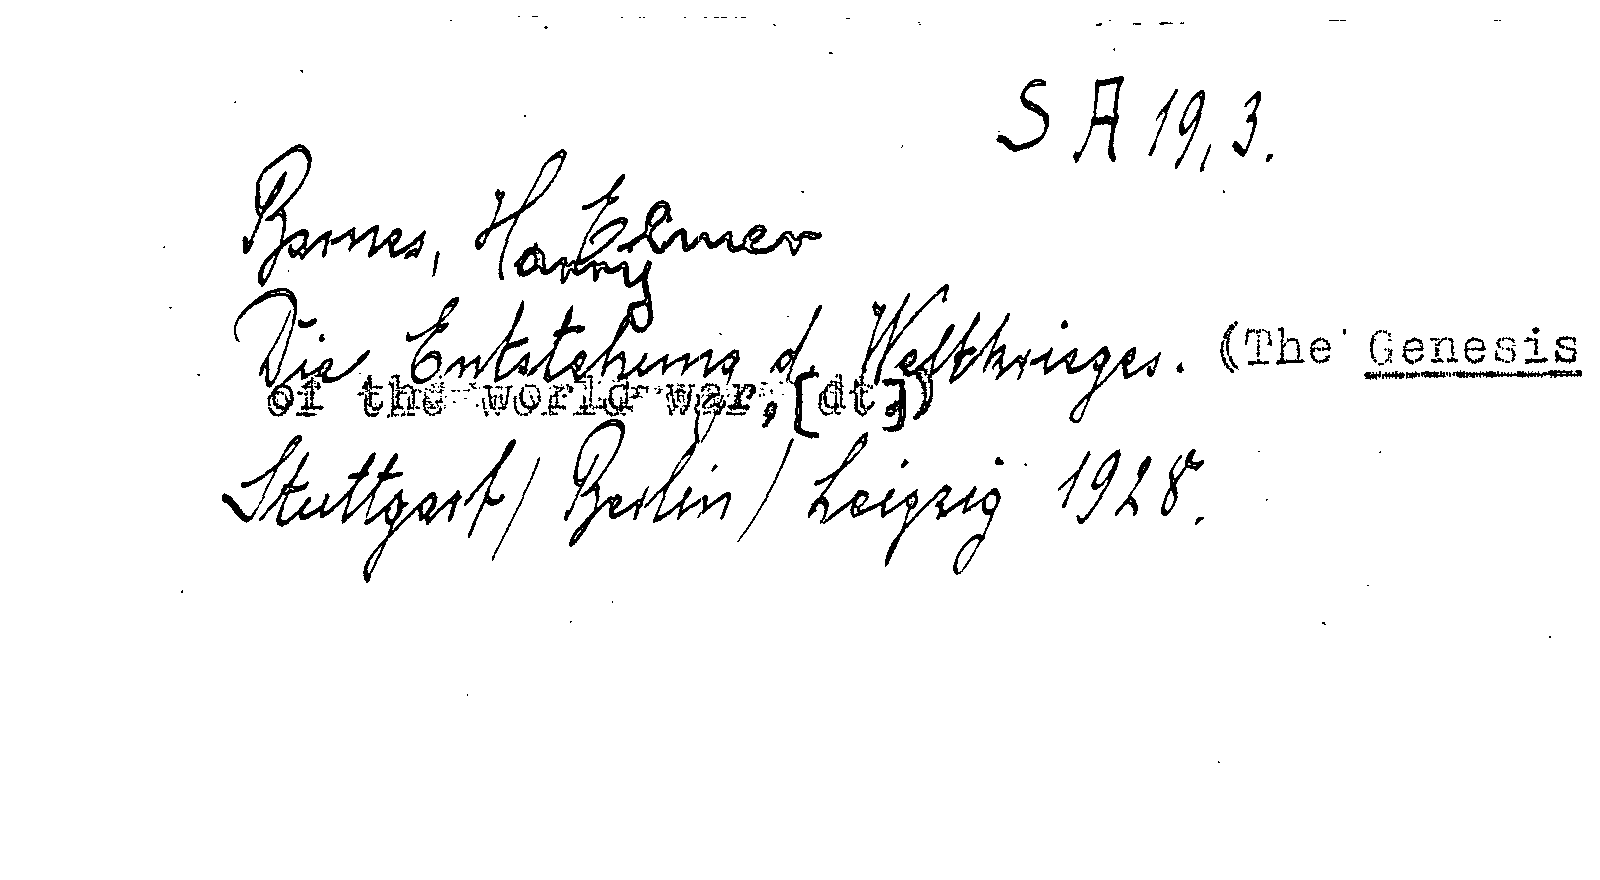 S A 19, 3.
Barnes, Harry Elmer
Die Entstehung d. Weltkrieges. (The Genesis
of the world war, [dt.])
Stuttgart / Berlin / Leipzig 1928.